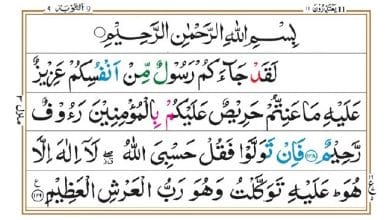 بِسْمِ اللهِ الرَّحْمٰنِ الرَّحِيْمِ
لَقَدْ جَآءَكُمْ رَسُوْلٌ مِّنْ اَنْفُسِكُمْ عَزِيْزٌ
عَلَيْهِ مَا عَنِتُّمْ حَرِيْصٌ عَلَيْكُمْ بِالْمُؤْمِنِيْنَ رَءُوْفٌ
رَّحِيْمٌ ۝۱۲۸ فَاِنْ تَوَلَّوْا فَقُلْ حَسْبِيَ اللهُ لَآ اِلٰهَ اِلَّا
هُوَ عَلَيْهِ تَوَكَّلْتُ وَهُوَ رَبُّ الْعَرْشِ الْعَظِيْمِ ۝۱۲۹